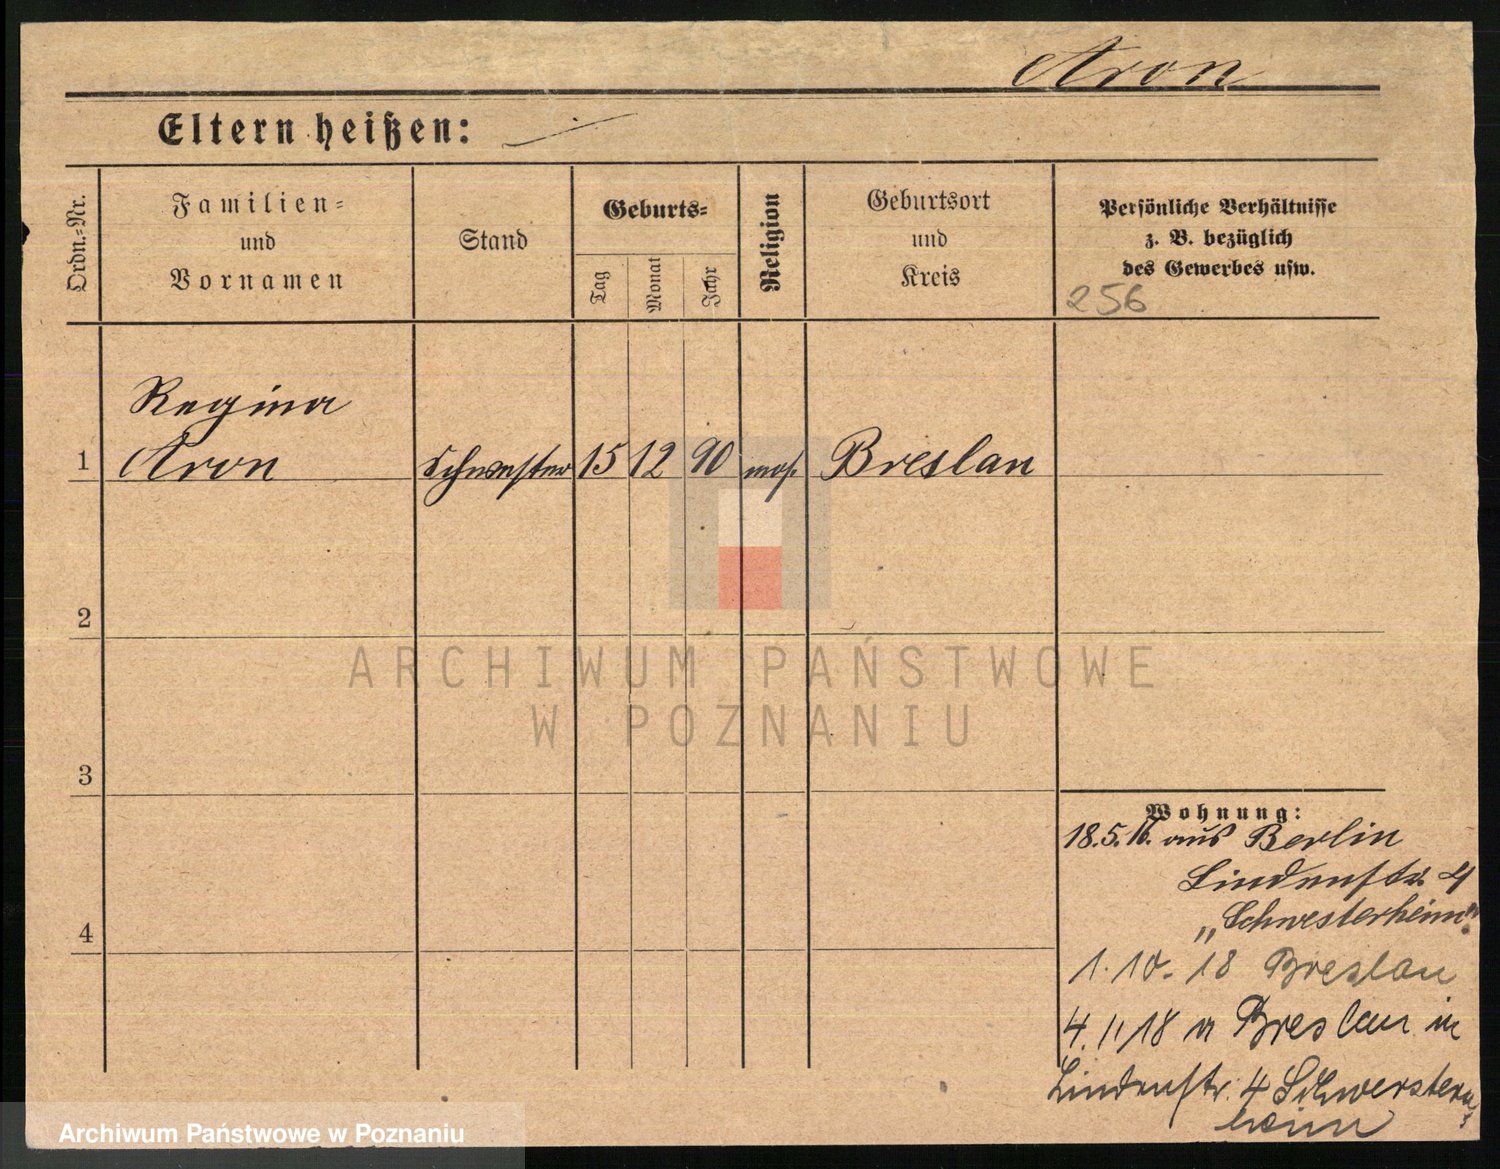 Aron
Eltern heißen:
Ordn.-Nr.
Familien-
und
Vornamen
Stand
Geburts-
Tag
Monat
Jahr
Religion
Geburtsort
und
Kreis
Persönliche Verhältnisse
z. B. bezüglich
des Gewerbes usw.
256
Regina
1 Aron Schwester 15 12 90 mos. Breslau
2
3
4
Wohnung:
18.5.16. aus Berlin
Lindenstr. 4
„Schwesterheim"
1. 10. 18 Breslau
4. 11 18 a Breslau in
Lindenstr. 4 Schwestern
heim
ARCHIWUM PAŃSTWOWE
W POZNANIU
Archiwum Państwowe w Poznaniu